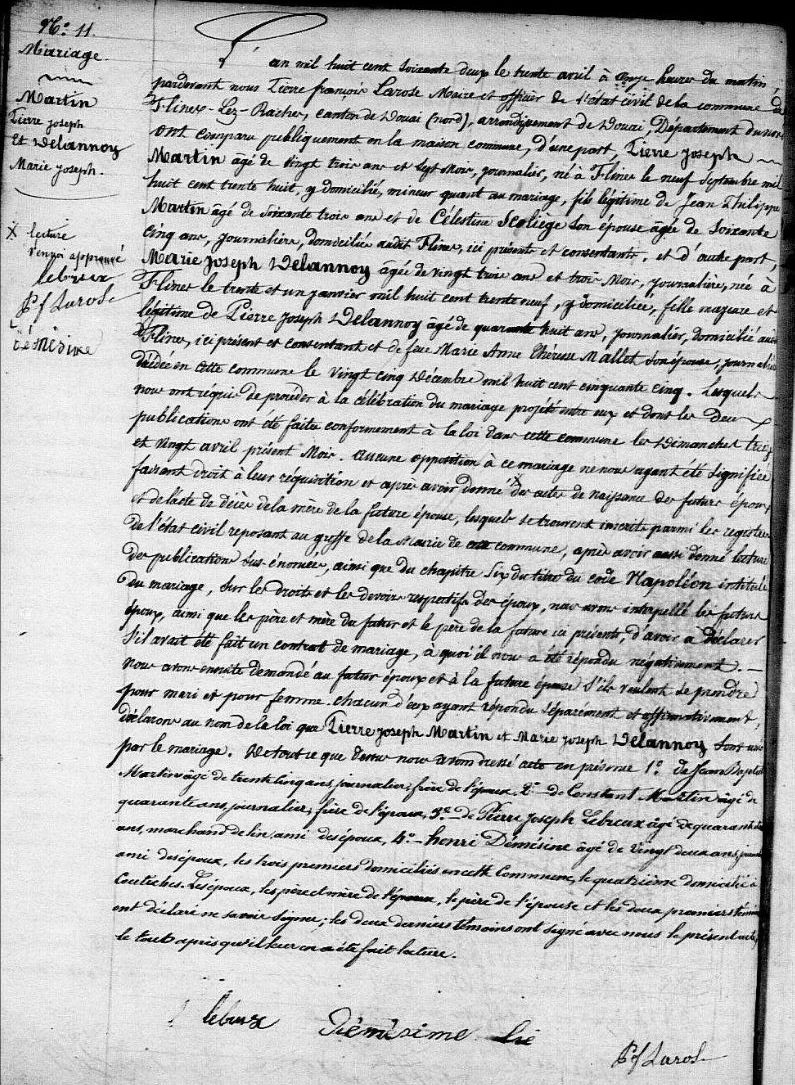 N.° 11
Mariage
Martin
Pierre Joseph
Et Delannoy
Marie Joseph.
X lecture
renvoi approuvé
lebreux
P f Larose
Démésine
L'an mil huit cent soixante deux le trente avril à onze heures du matin
pardevant nous Pierre François Larose Maire et officier de l'état civil de la commune de
Flines-Lez-Raches, canton de Douai (nord), arrondissement de Douai, Département du nord
ont comparu publiquement en la maison commune, d'une part, Pierre Joseph
Martin âgé de vingt trois ans et sept Mois, journalier, né à Flines le neuf Septembre mil
huit cent trente huit, y domicilié, mineur quant au mariage, fils légitime de Jean Philippe
Martin âgé de soixante trois ans et de Célestine Scoliège son épouse âgée de soixante
cinq ans, journaliers, domiciliés audit Flines, ici présents et consentants, et d'autre part,
Marie Joseph Delannoy âgée de vingt trois ans et trois Mois, journalière, née à
Flines le trente et un janvier mil huit cent trente neuf, y domiciliée, fille majeure et
légitime de Pierre Joseph Delannoy âgé de quarante huit ans, journalier, domicilié audit
Flines, ici présent et consentant et de feue Marie Anne Thérèse Mallet son épouse, journalière
décédée en cette commune le vingt cinq Décembre mil huit cent cinquante cinq. Lesquels
nous ont requis de procéder à la célébration du mariage projeté entre eux et dont les deux
publications ont été faites conformément à la loi dans cette commune les Dimanches treize
et vingt avril présent Mois. Aucune opposition à ce mariage ne nous ayant été signifiée
faisant droit à leur réquisition et après avoir donné X des actes de naissance des futurs époux
et de l'acte de décès de la mère de la future épouse, lesquels se trouvent inscrits parmi les registres
de l'état civil reposant au greffe de la Mairie de cette commune, après avoir aussi donné lecture
des publications sus énoncées, ainsi que du chapitre six du titre du code Napoléon intitulé
du mariage, sur les droits et les devoirs respectifs des époux, nous avons interpellé les futurs
époux, ainsi que les père et mère du futur et le père de la future ici présents, d'avoir à déclarer
s'il avait été fait un contrat de mariage, à quoi il nous a été répondu négativement.
Nous avons ensuite demandé au futur époux et à la future épouse s'ils veulent se prendre
pour mari et pour femme. Chacun d'eux ayant répondu séparément et affirmativement,
déclarons au nom de la loi que Pierre Joseph Martin et Marie Joseph Delannoy sont unis
par le mariage. De tout ce que dessus nous avons dressé acte en présence 1.° de Jean Baptiste
Martin âgé de trente cinq ans journalier, frère de l'époux. 2.° de Constant Martin âgé de
quarante ans journalier, frère de l'époux, 3.° de Pierre Joseph Lebreux âgé de quarante
ans, marchand de lin, ami des époux, 4.° henri Démésine âgé de vingt deux ans,
ami des époux, les trois premiers domiciliés en cette Commune, le quatrième domicilié à
Coutiches. Les époux, les père et mère de l'époux, le père de l'épouse et les deux premiers témoins
ont déclaré ne savoir signer; les deux derniers témoins ont signé avec nous le présent acte,
le tout après qu'il leur en a été fait lecture.
lebreux Démésime
P f Larose